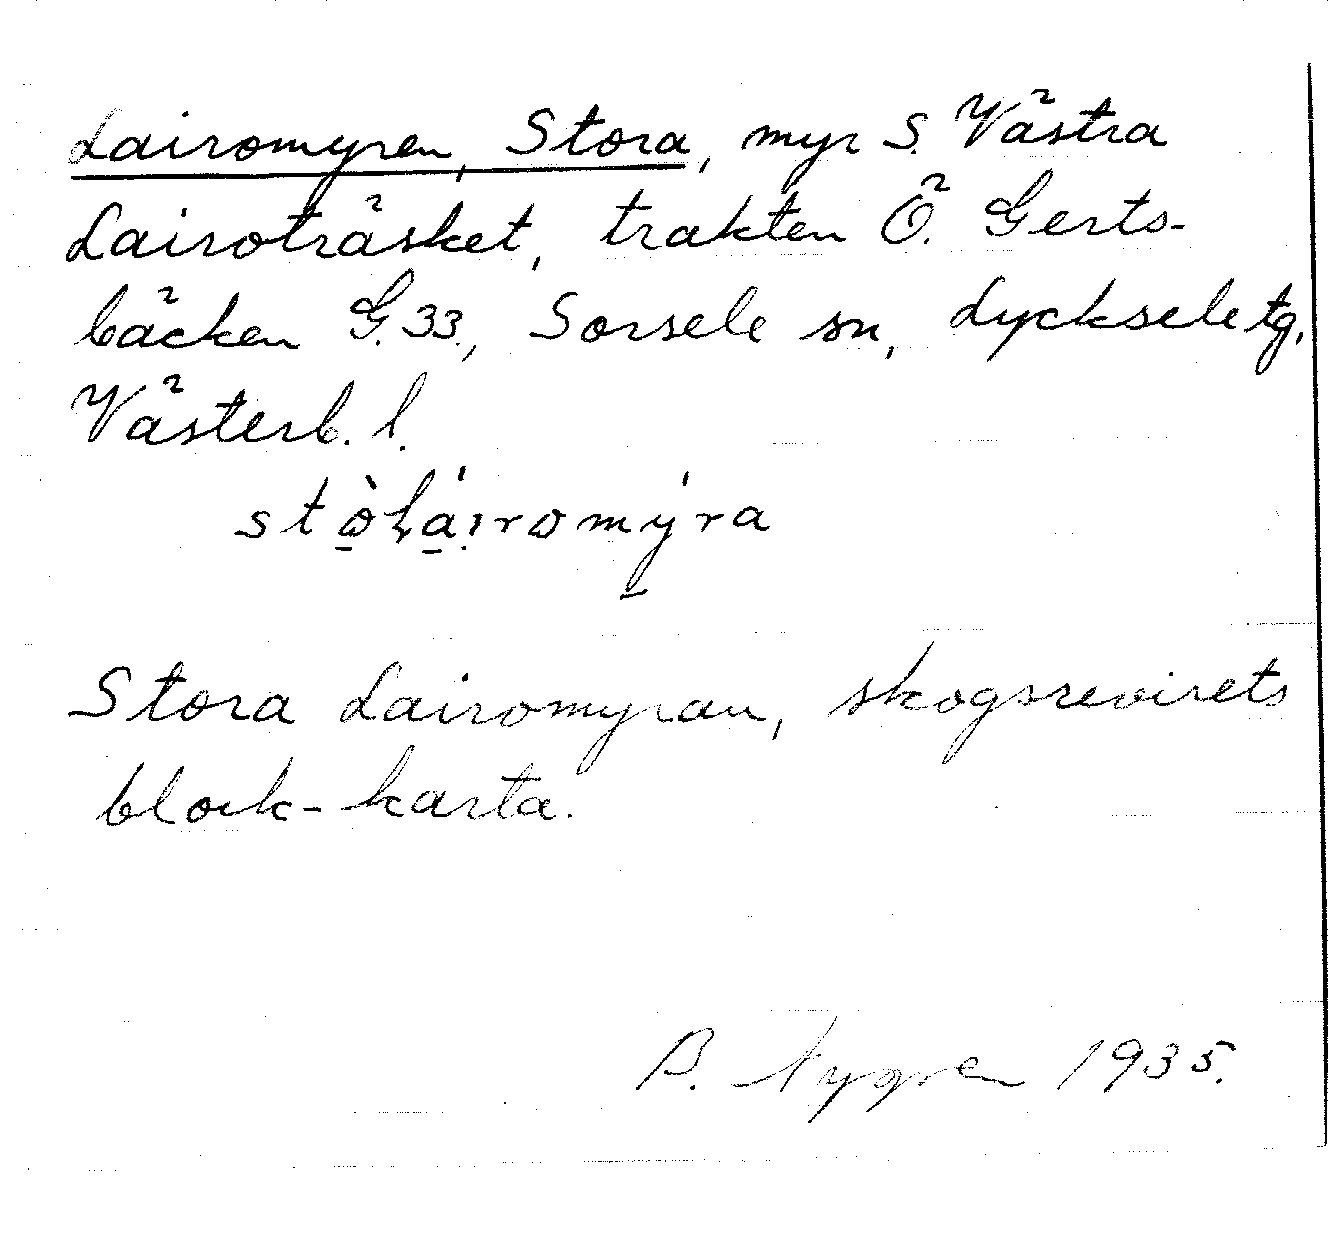 Lairomyren, Stora, myr S. Västra
Lairoträsket, trakten Ö. Gerts-
bäcken G.33., Sorsele sn, Lycksele tg.
Västerb. l.
Stora Lairomyran, skogsrevirets
block-karta.
B. Nygren 1935.